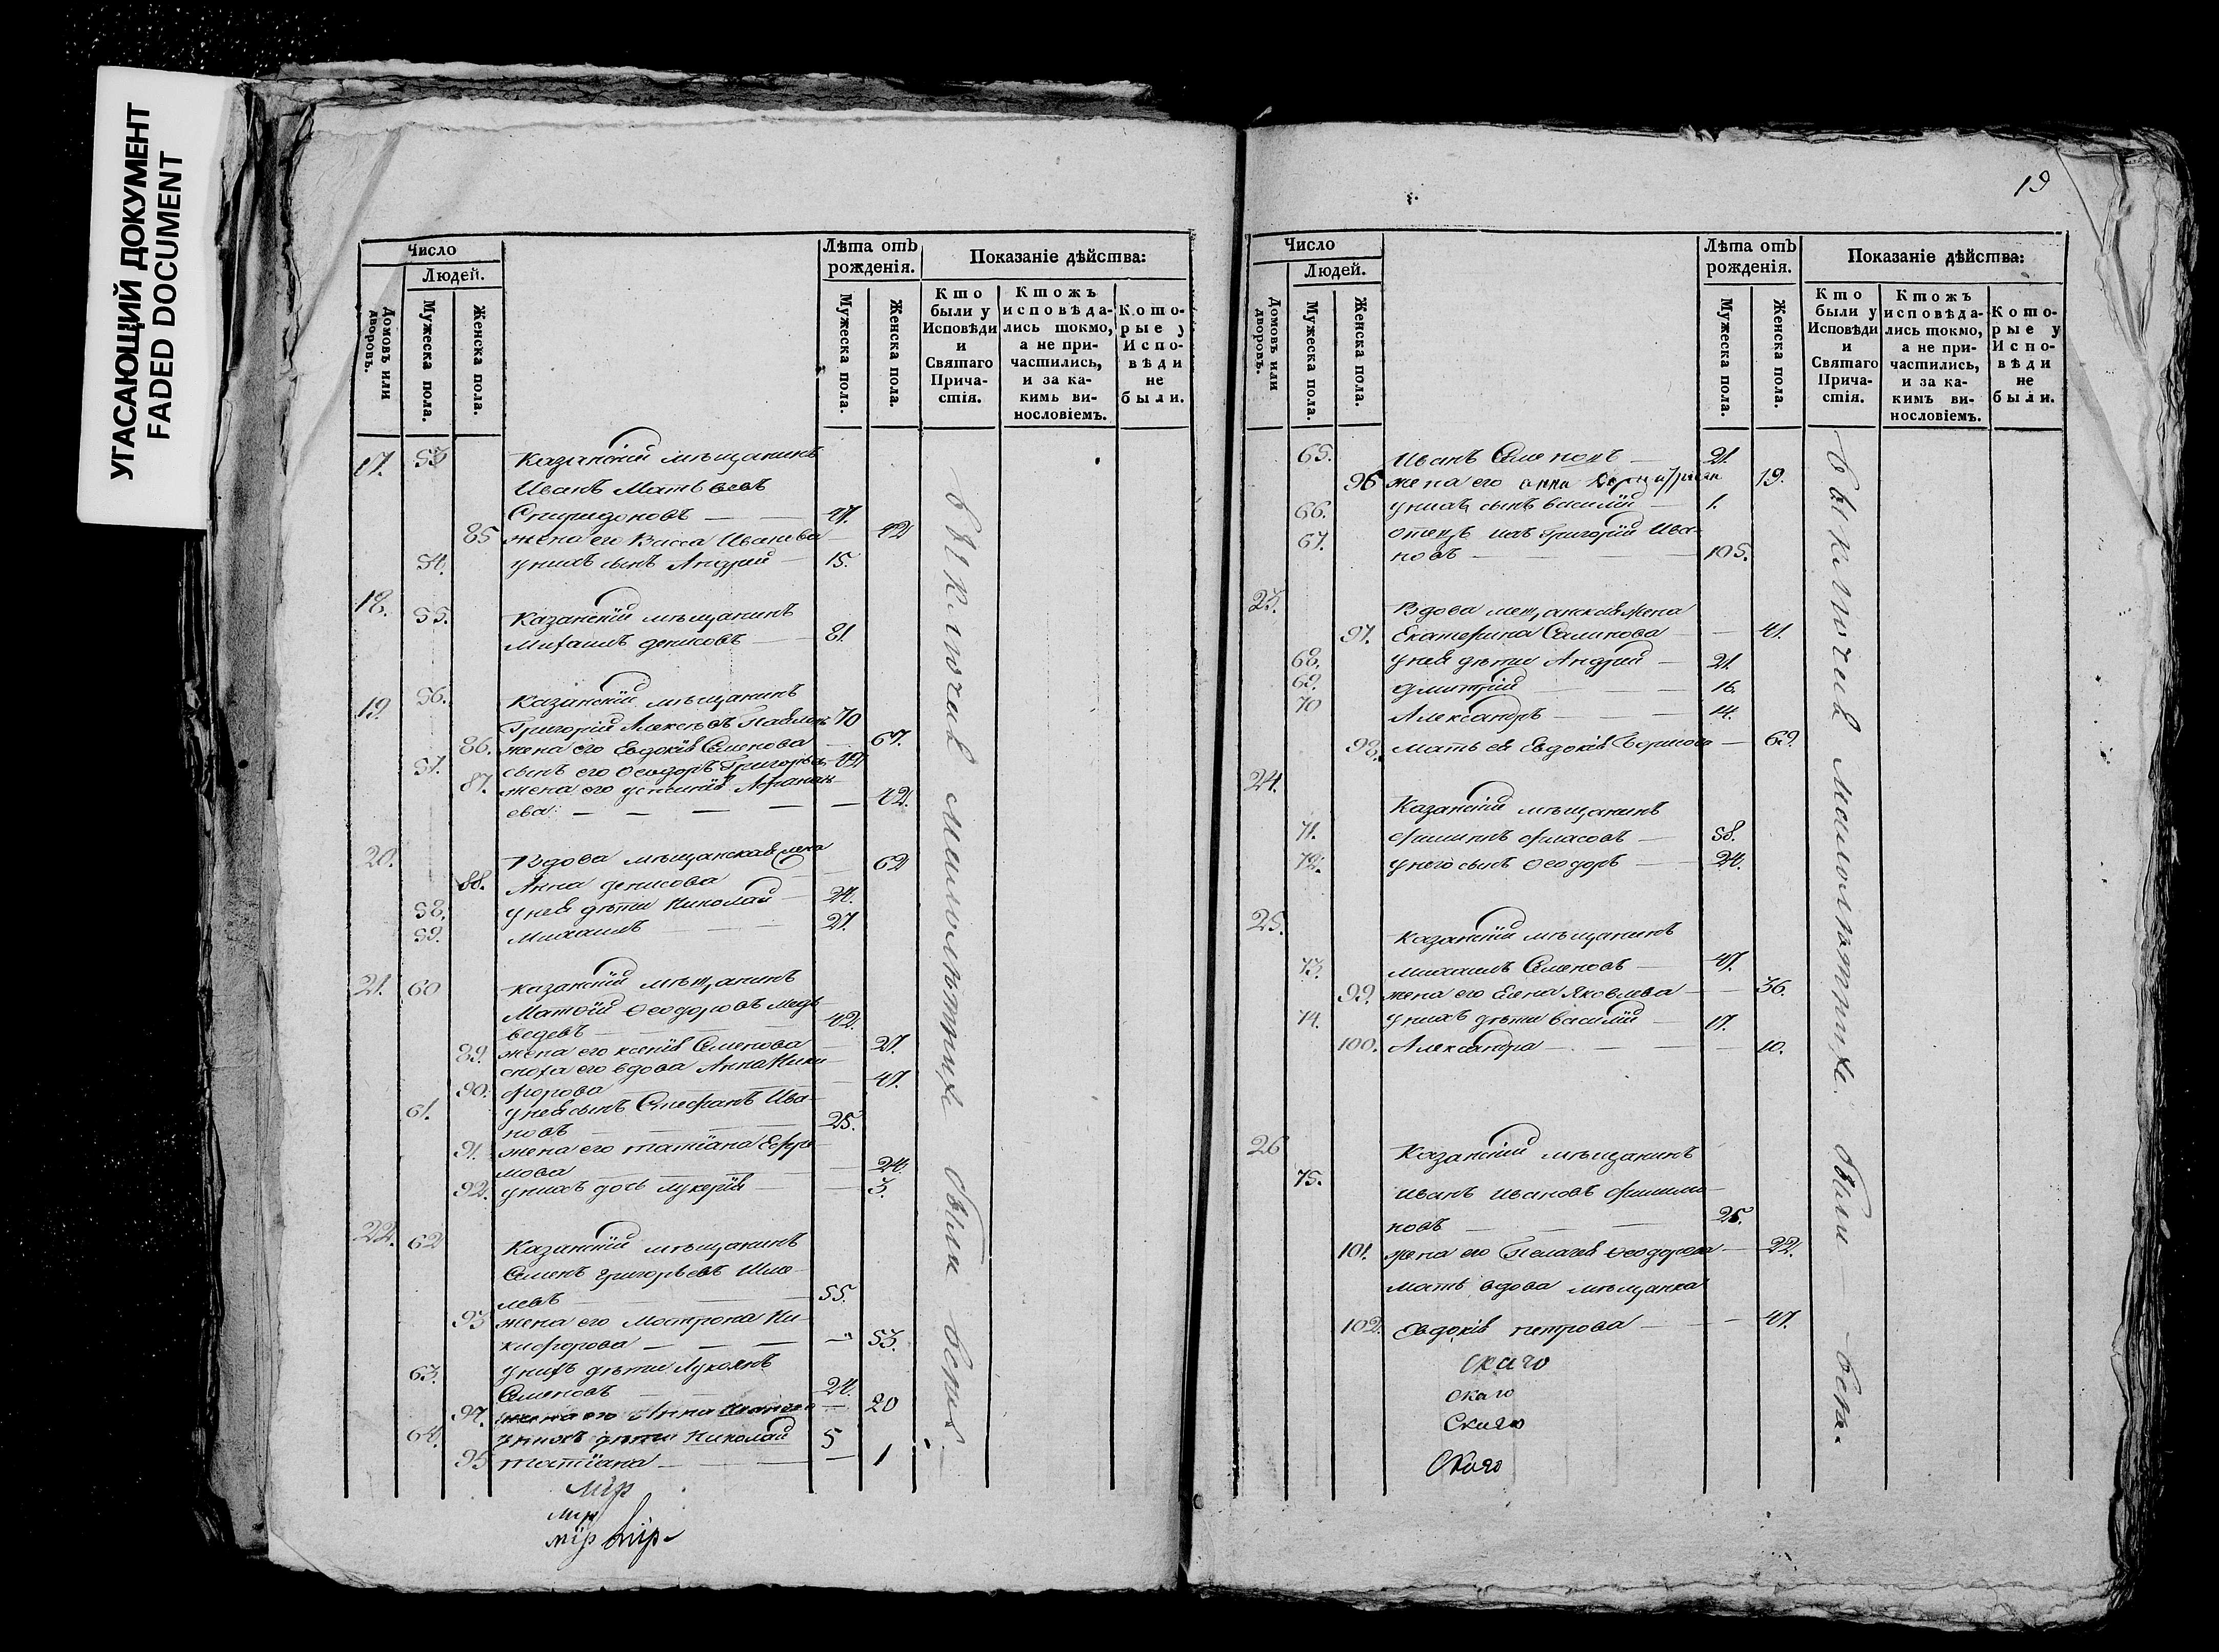 УГАСАЮЩИЙ ДОКУМЕНТ
FADED DOCUMENT
Число
Людей.
Домовъ или дворовъ.
Мужеска пола.
Женска пола.
Лѣта отъ рожденія.
Мужеска пола.
Женска пола.
Показаніе дѣйства:
Кто были у Исповѣди и Святаго Прича-стія.
Ктожъ исповѣда-лись токмо, а не при-частились, и за ка-кимъ ви-нословіемъ.
Кото-рые у Испо-вѣди не были.
17. 53 Казанскій мѣщанинъ
Иванъ Матвеевъ
Спиридоновъ — 47.
85 жена его Васса Иванова 42
54. у нихъ сынъ Андрей — 15.
18. 55. Казанскій мѣщанинъ
Михаилъ Денисовъ — 81.
19. 56. Казанскій мѣщанинъ
Григорій Алексѣевъ 70
86. жена его Евдокія Семенова 67.
57. сынъ его Ѳеодоръ Григорьевъ
87. жена его
ева — — — 42.
20. Вдова мѣщанская жена 62
88. Анна Денисова
58. у нея дѣти Николай — 24.
59. Михаилъ — 27.
21. 60 Казанскій мѣщанинъ
Матвій Ѳеодоровъ Мед-
ведевъ — 42.
89. жена его Ксенія Семенова 27.
сноха его вдова Анна Ники-
90. форова — 47.
61. у нея сынъ Стефанъ Ива-
новъ — 25.
91. жена его Татіана Ефре-
мова — 24.
92. у нихъ дочь Лукерія — 3.
22. 62 Казанскій мѣщанинъ
Семенъ Григорьевъ Шме-
левъ — 55.
93 жена его Матрона Ни-
кифорова — — — 53.
63. у нихъ дѣти Лукоянъ
Семеновъ — 24.
94. жена его Анна — 20
64. у нихъ дѣти Николай 5
95 Татіана — — 1
мір
мір
мір мір
выключая малолѣтнихъ были вся
19
Число
Людей.
Домовъ или дворовъ.
Мужеска пола.
Женска пола.
Лѣта отъ рожденія.
Мужеска пола.
Женска пола.
Показаніе дѣйства:
Кто были у Исповѣди и Святаго Прича-стія.
Ктожъ исповѣда-лись токмо, а не при-частились, и за ка-кимъ ви-нословіемъ.
Кото-рые у Испо-вѣди не были.
65. Иванъ Семеновъ — 21.
96 жена его Анна 19.
66. у нихъ сынъ Василій — 1.
67. отецъ ихъ Григорій Ива-
новъ — 105.
23. Вдова мещанская жена
97. Екатерина Салихова — 41.
68. у нея дѣти Андрей — 21.
69. Дмитрій — 16.
70 Александръ — 14.
98. мать ея Евдокія Борисова — 69.
24. Казанскій мѣщанинъ
71. Филиппъ — 58.
72. у него сынъ Ѳеодоръ — 24.
25. Казанскій мѣщанинъ
73. Михаилъ Семеновъ — 47.
99. жена его Елена Яковлева — 36.
74. у нихъ дѣти Василій — 17.
100. Александра — 10.
26 Казанскій мѣщанинъ
75. Иванъ Ивановъ Филимо-
новъ — 25.
101. жена его Пелагея Ѳеодорова — 22.
мать вдова мѣщанка
102. Евдокія Петрова — 47.
скаго
скаго
скаго
скаго
выключая малолѣтнихъ были вся.